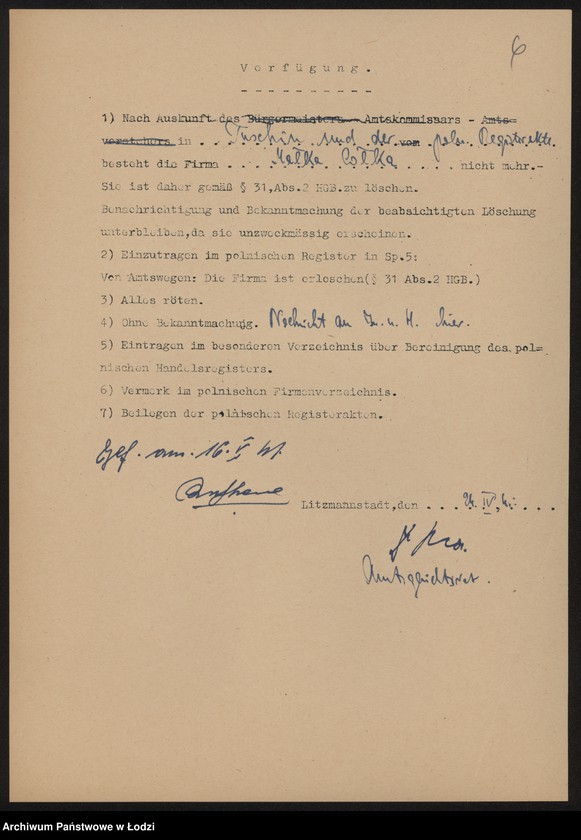 6
Verfügung.
----------
1) Nach Auskunft des Bürgermeisters - Amtskommissars - Amts=
vorstehers in . . . Tuschin und der vom poln. Registerakte
besteht die Firma . . . Małka Cołka . . . . . nicht mehr.-
Sie ist daher gemäß § 31,Abs.2 HGB.zu löschen.
Benachrichtigung und Bekanntmachung der beabsichtigten Löschung
unterbleiben,da sie unzweckmässig erscheinen.
2) Einzutragen im polnischen Register in Sp.5:
Von Amtswegen: Die Firma ist erloschen(§ 31 Abs.2 HGB.)
3) Alles röten.
4) Ohne Bekanntmachung. Nachricht an J. u. H. hier.
5) Eintragen im besonderen Verzeichnis über Bereinigung des pol=
nischen Handelsregisters.
6) Vermerk im polnischen Firmenverzeichnis.
7) Beilegen der polnischen Registerakten.
am 16. V 41.
Litzmannstadt,den . . . 24. IV. 41. . . .
Amtsgerichtsrat.
Archiwum Państwowe w Łodzi